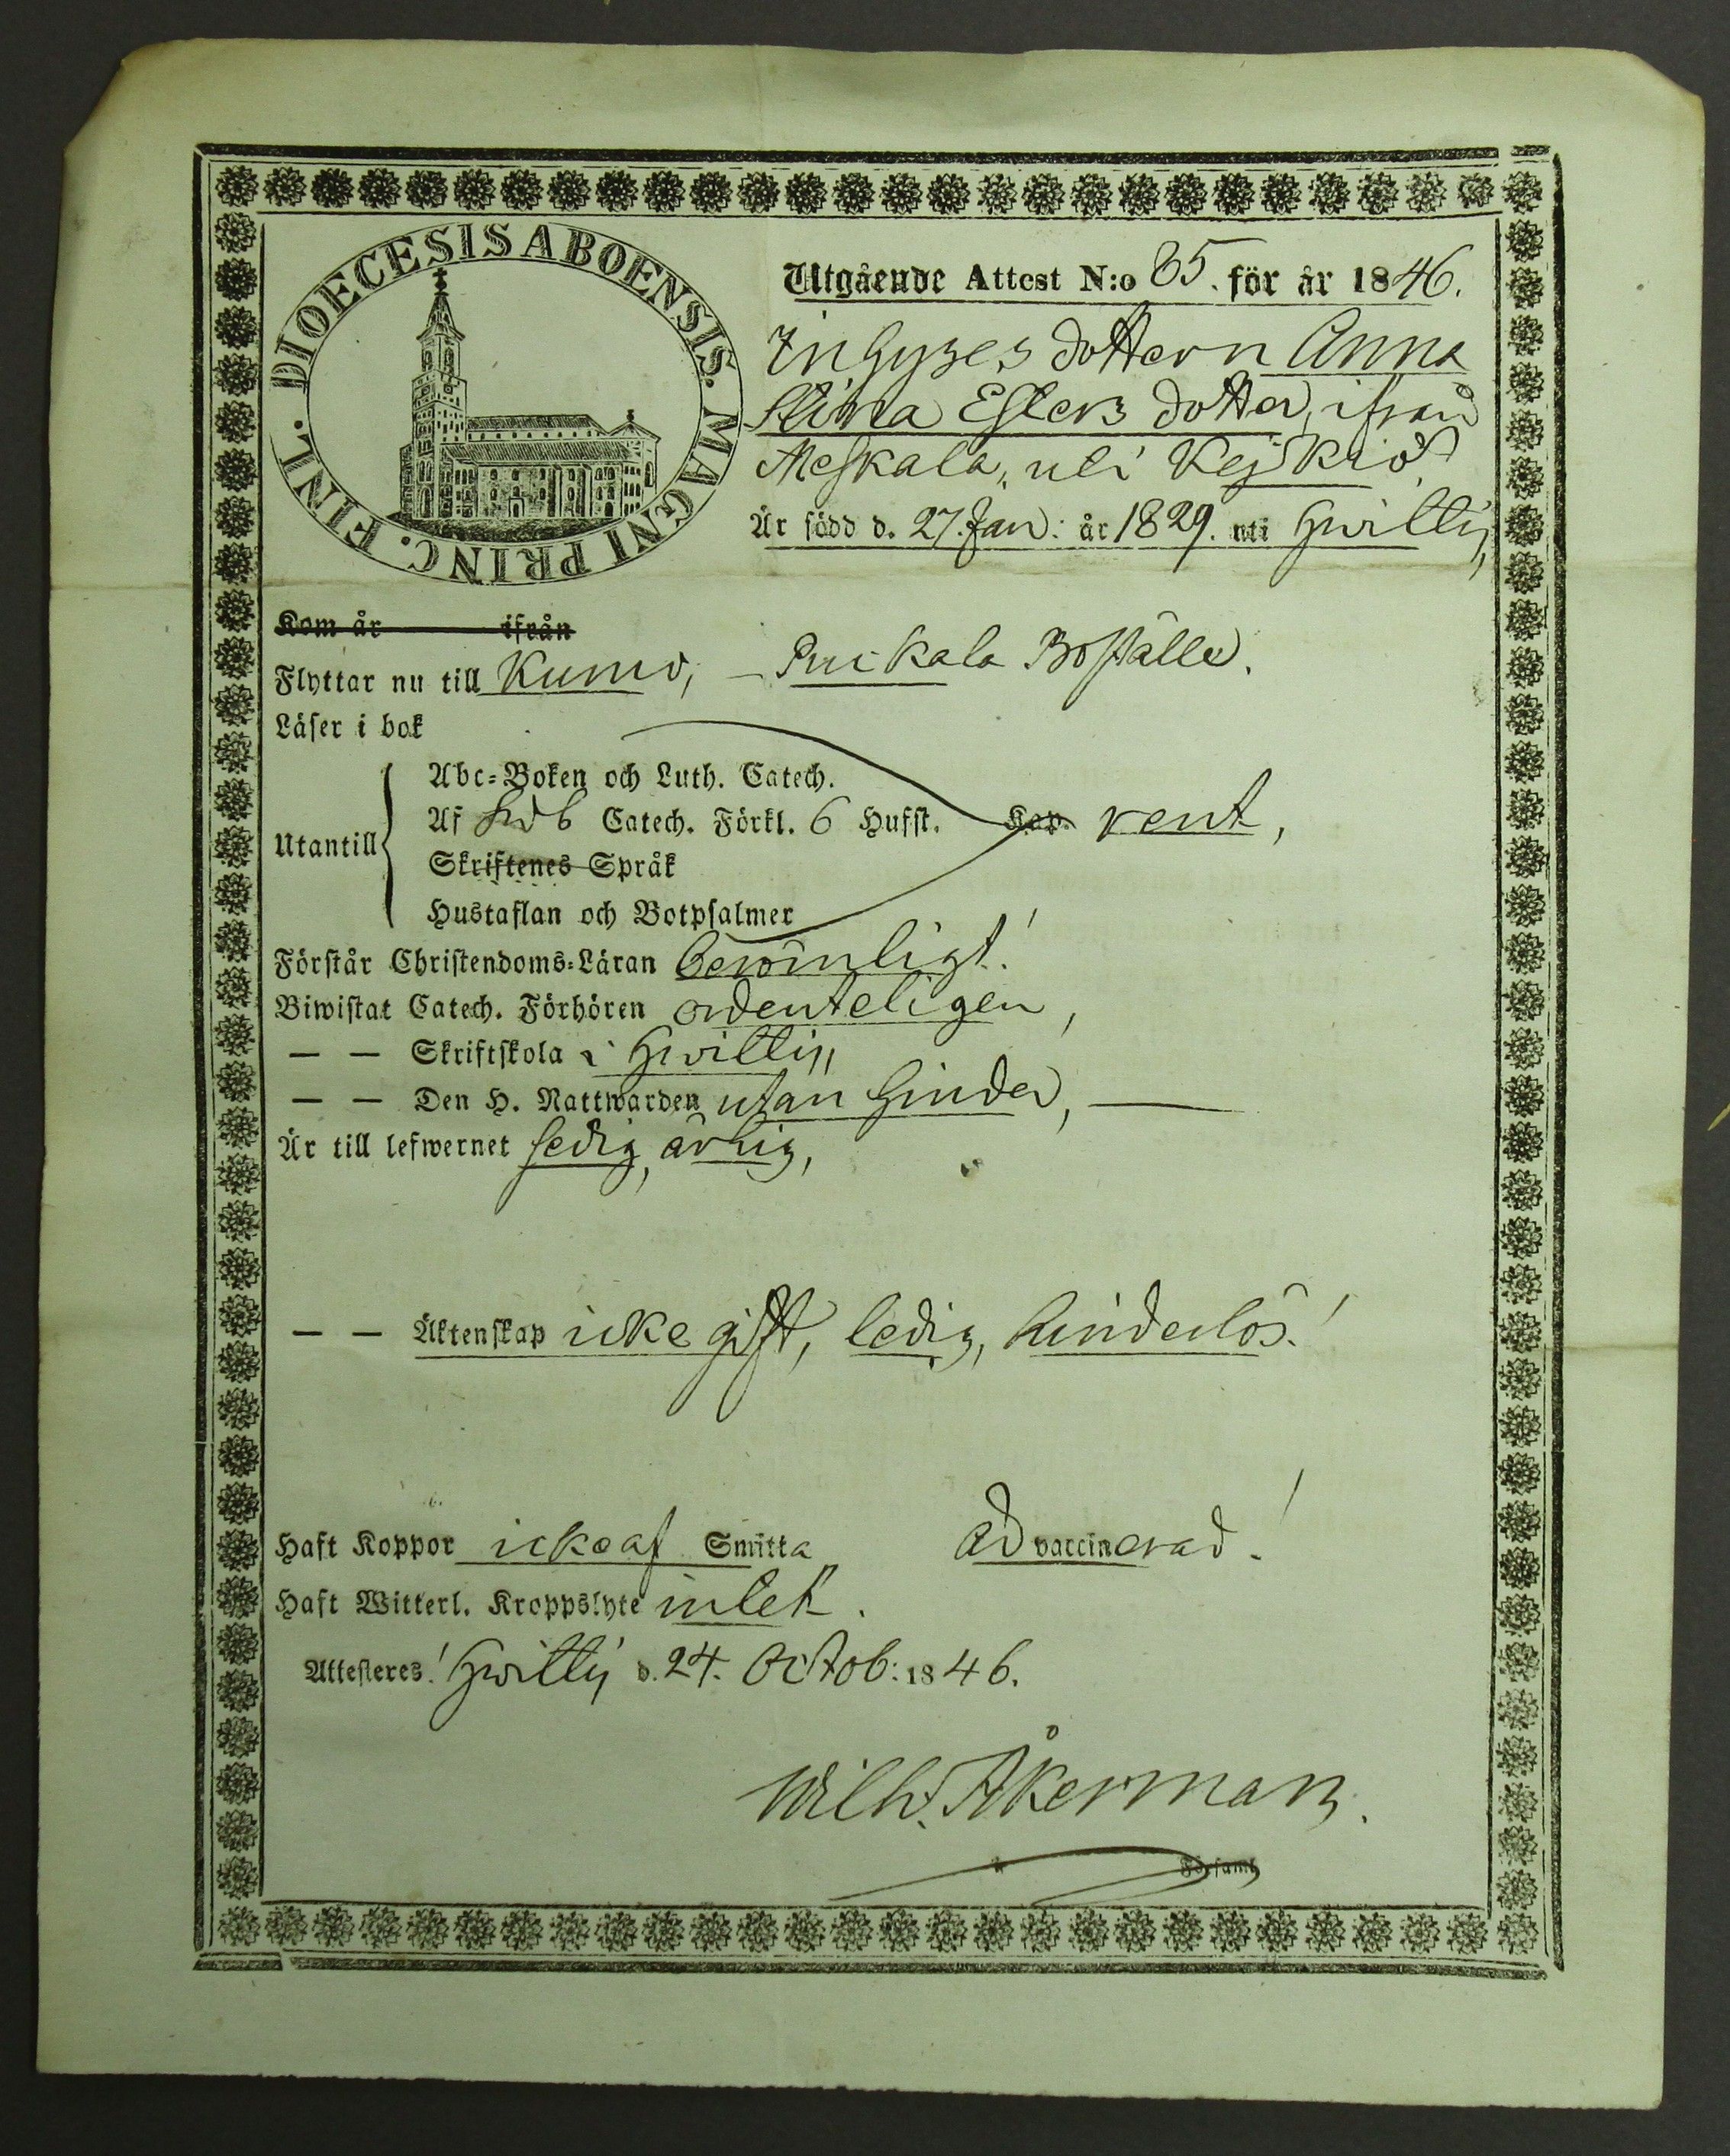 DIOECESIS ABOENSIS. MAGNI PRINC. FINL.
Utgående Attest N:o 85. för år 1846.
Inhyses dottern Anna
Stina Esters dotter, ifrån
Meskala, uti Kejkiö
Är född d. 27. Jan: år 1829. uti Hvittis,
Kom år ifrån
Flyttar nu till Kumo, – Puckala Boställe.
Läser i bok
Utantill
Abc-Boken och Luth. Catech.
Af Swb Catech. Förkl. 6 Hufst. Kap. rent,
Skriftenes Språk
Hustaflan och Botpsalmer
Förstår Christendoms-Läran berömligt!
Biwistat Catech. Förhören ordenteligen,
— — Skriftskola i Hvittis,
— — Den H. Nattwarden utan hinder, —
Är till lefwernet sedig, ärlig,
— — Äktenskap icke gift, ledig, hinderlös!
Haft Koppor icke af Smitta ad vaccinerad!
Haft Witterl. Kroppslyte intet.
Attesteres! Hvittis d. 24. Octob: 1846.
Wilh. Åkerman.
i Församl.